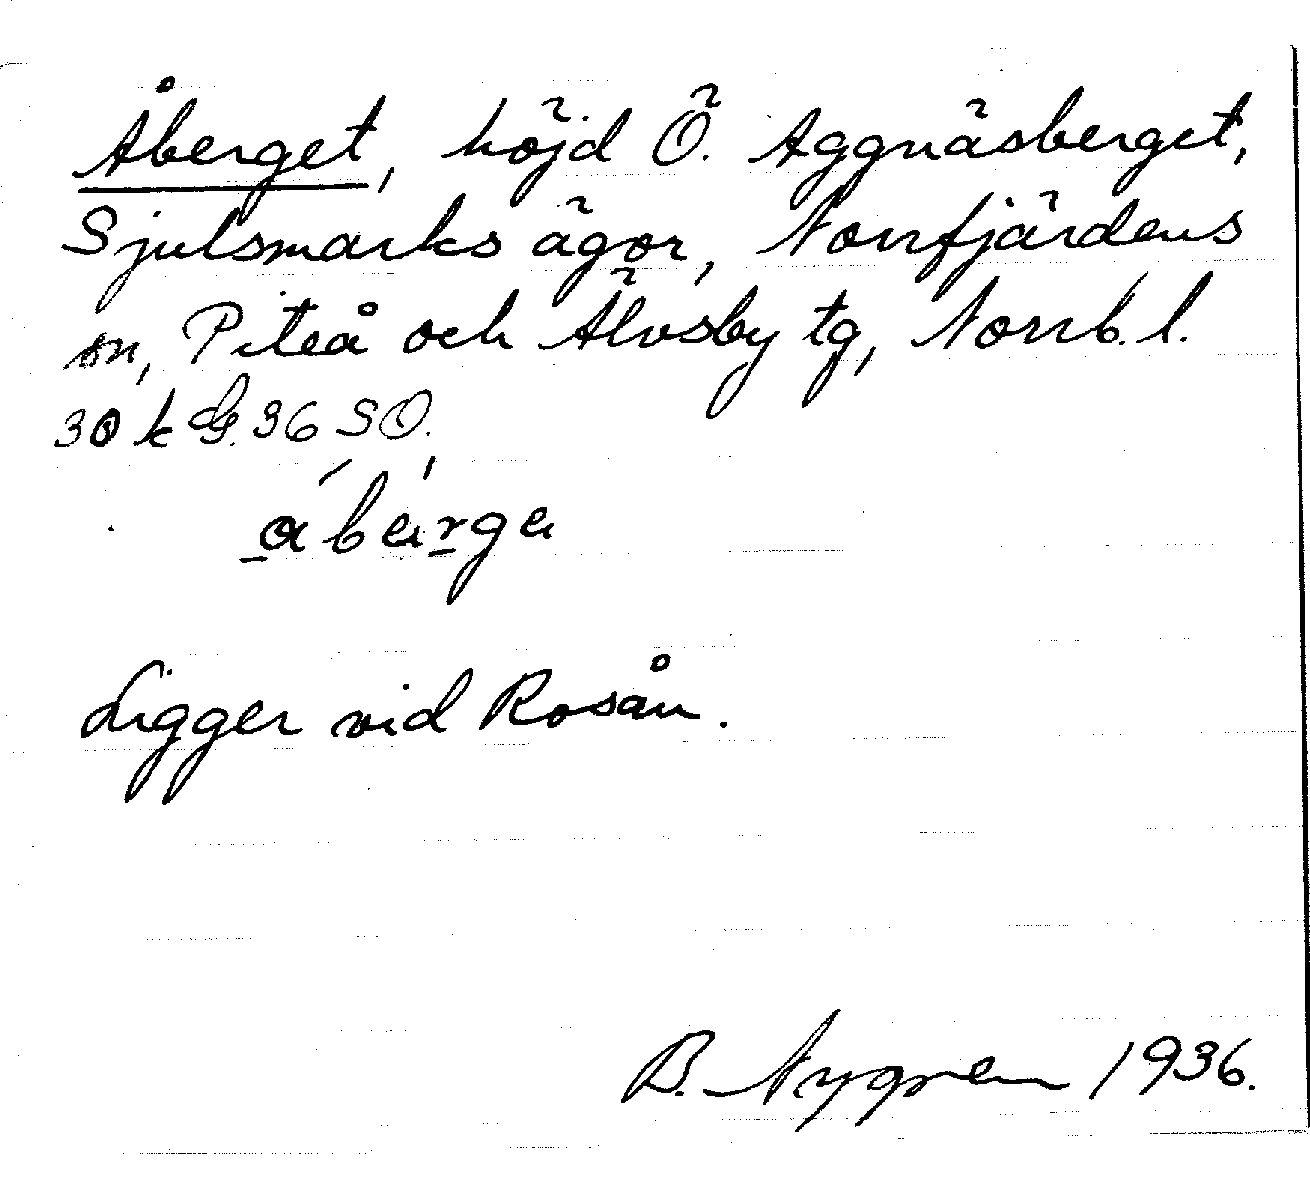 Åberget, höjd Ö. Aggnäsberget,
Sjulsmarks ägor, Norrfjärdens
sn, Piteå och Älvsby tg, Norrb. l.
30 k G. 36 SO.
åbärgä
Ligger vid Rosån.
B. Nygren 1936.